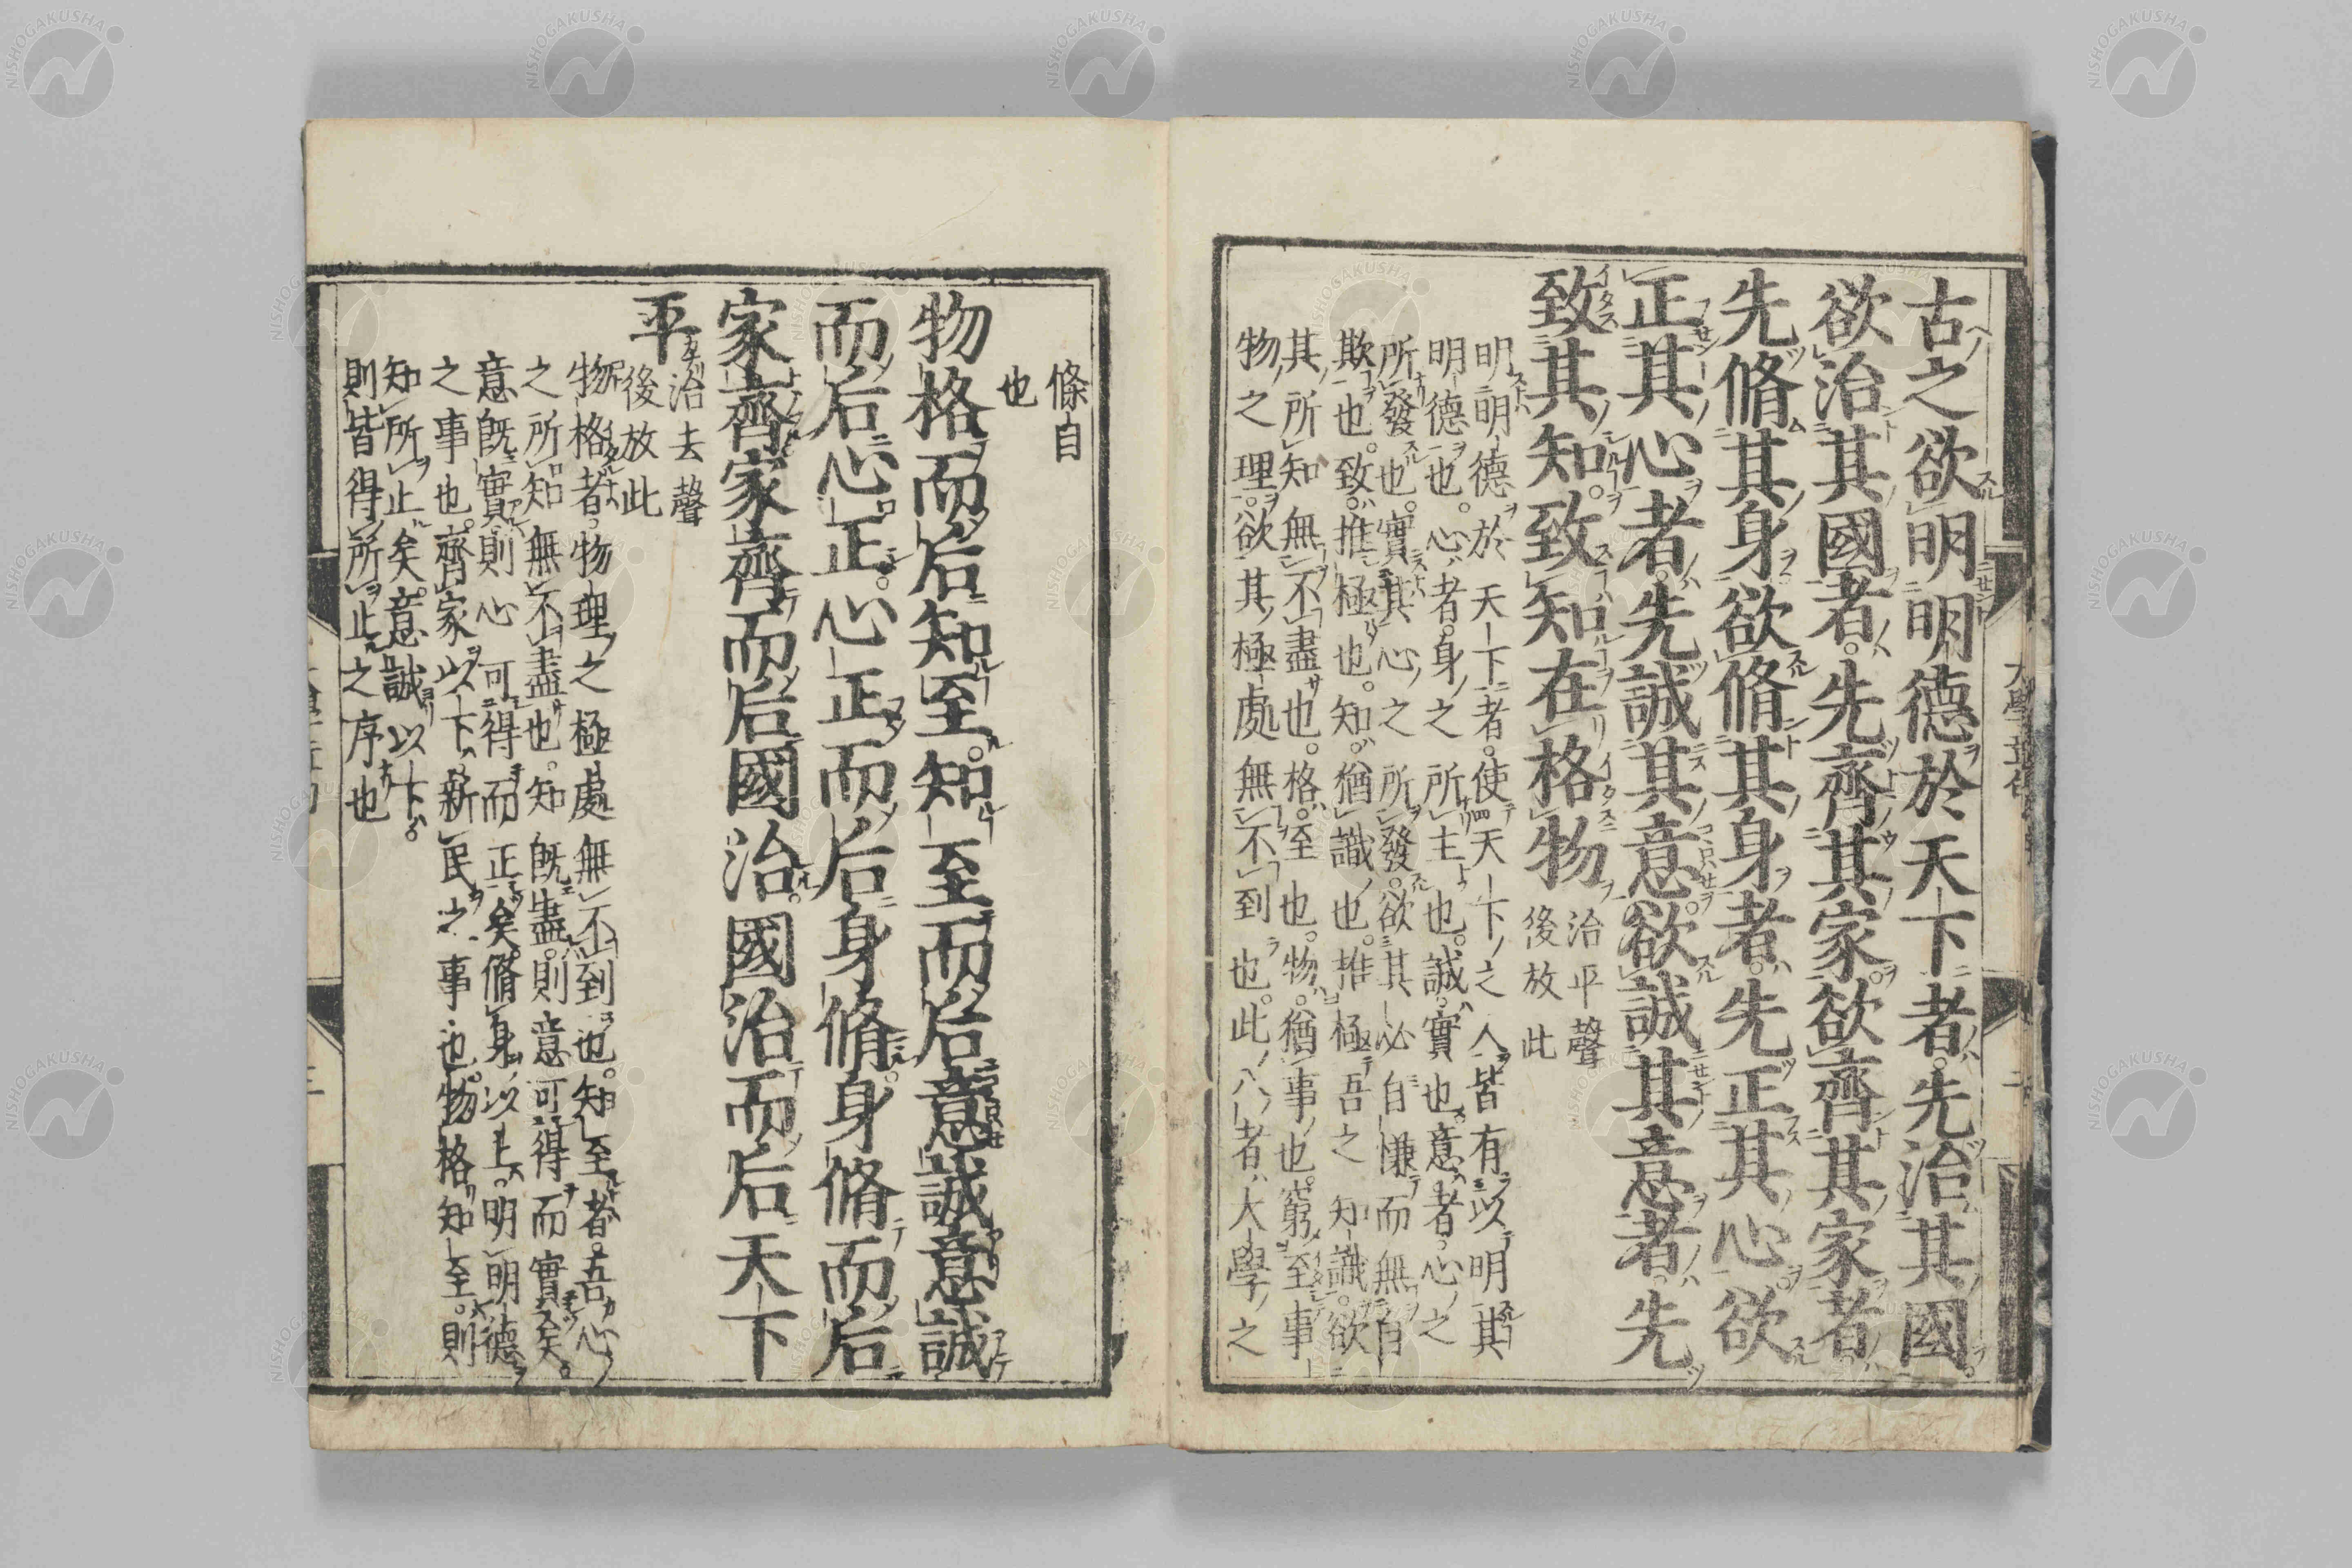 古之欲明明德於天下者。先治其國。
欲治其國者。先齊其家。欲齊其家者
先脩其身。欲脩其身者。先正其心。欲
正其心者。先誠其意。欲誠其意者。先
致其知。致知在格物
治平聲
後放此
明明德於天下者。使天下之人皆有以明其
明德也。心者。身之所主也。誠。實也。意者。心之
所發也。實其心之所發。欲其必自慊而無自
欺也。致。推極也。知。猶識也。推極吾之知識。欲
其所知無不盡也。格。至也。物。猶事也。窮至事
物之理。欲其極處無不到也。此八者。大學之
條自
也
物格而后知至。知至而后意誠意誠
而后心正。心正而后身脩。身脩而后
家齊家齊而后國治。國治而后天下
平
治去聲
後放此
物格者。物理之極處無不到也。知至者。吾心
之所知無不盡也。知既盡。則意可得而實矣。
意既實則心可得而正矣。脩身以上。明明德
之事也。齊家以下。新民之事也。物格知至。則
知所止矣。意誠以下。
則皆得所止之序也
NISHOGAKUSHA